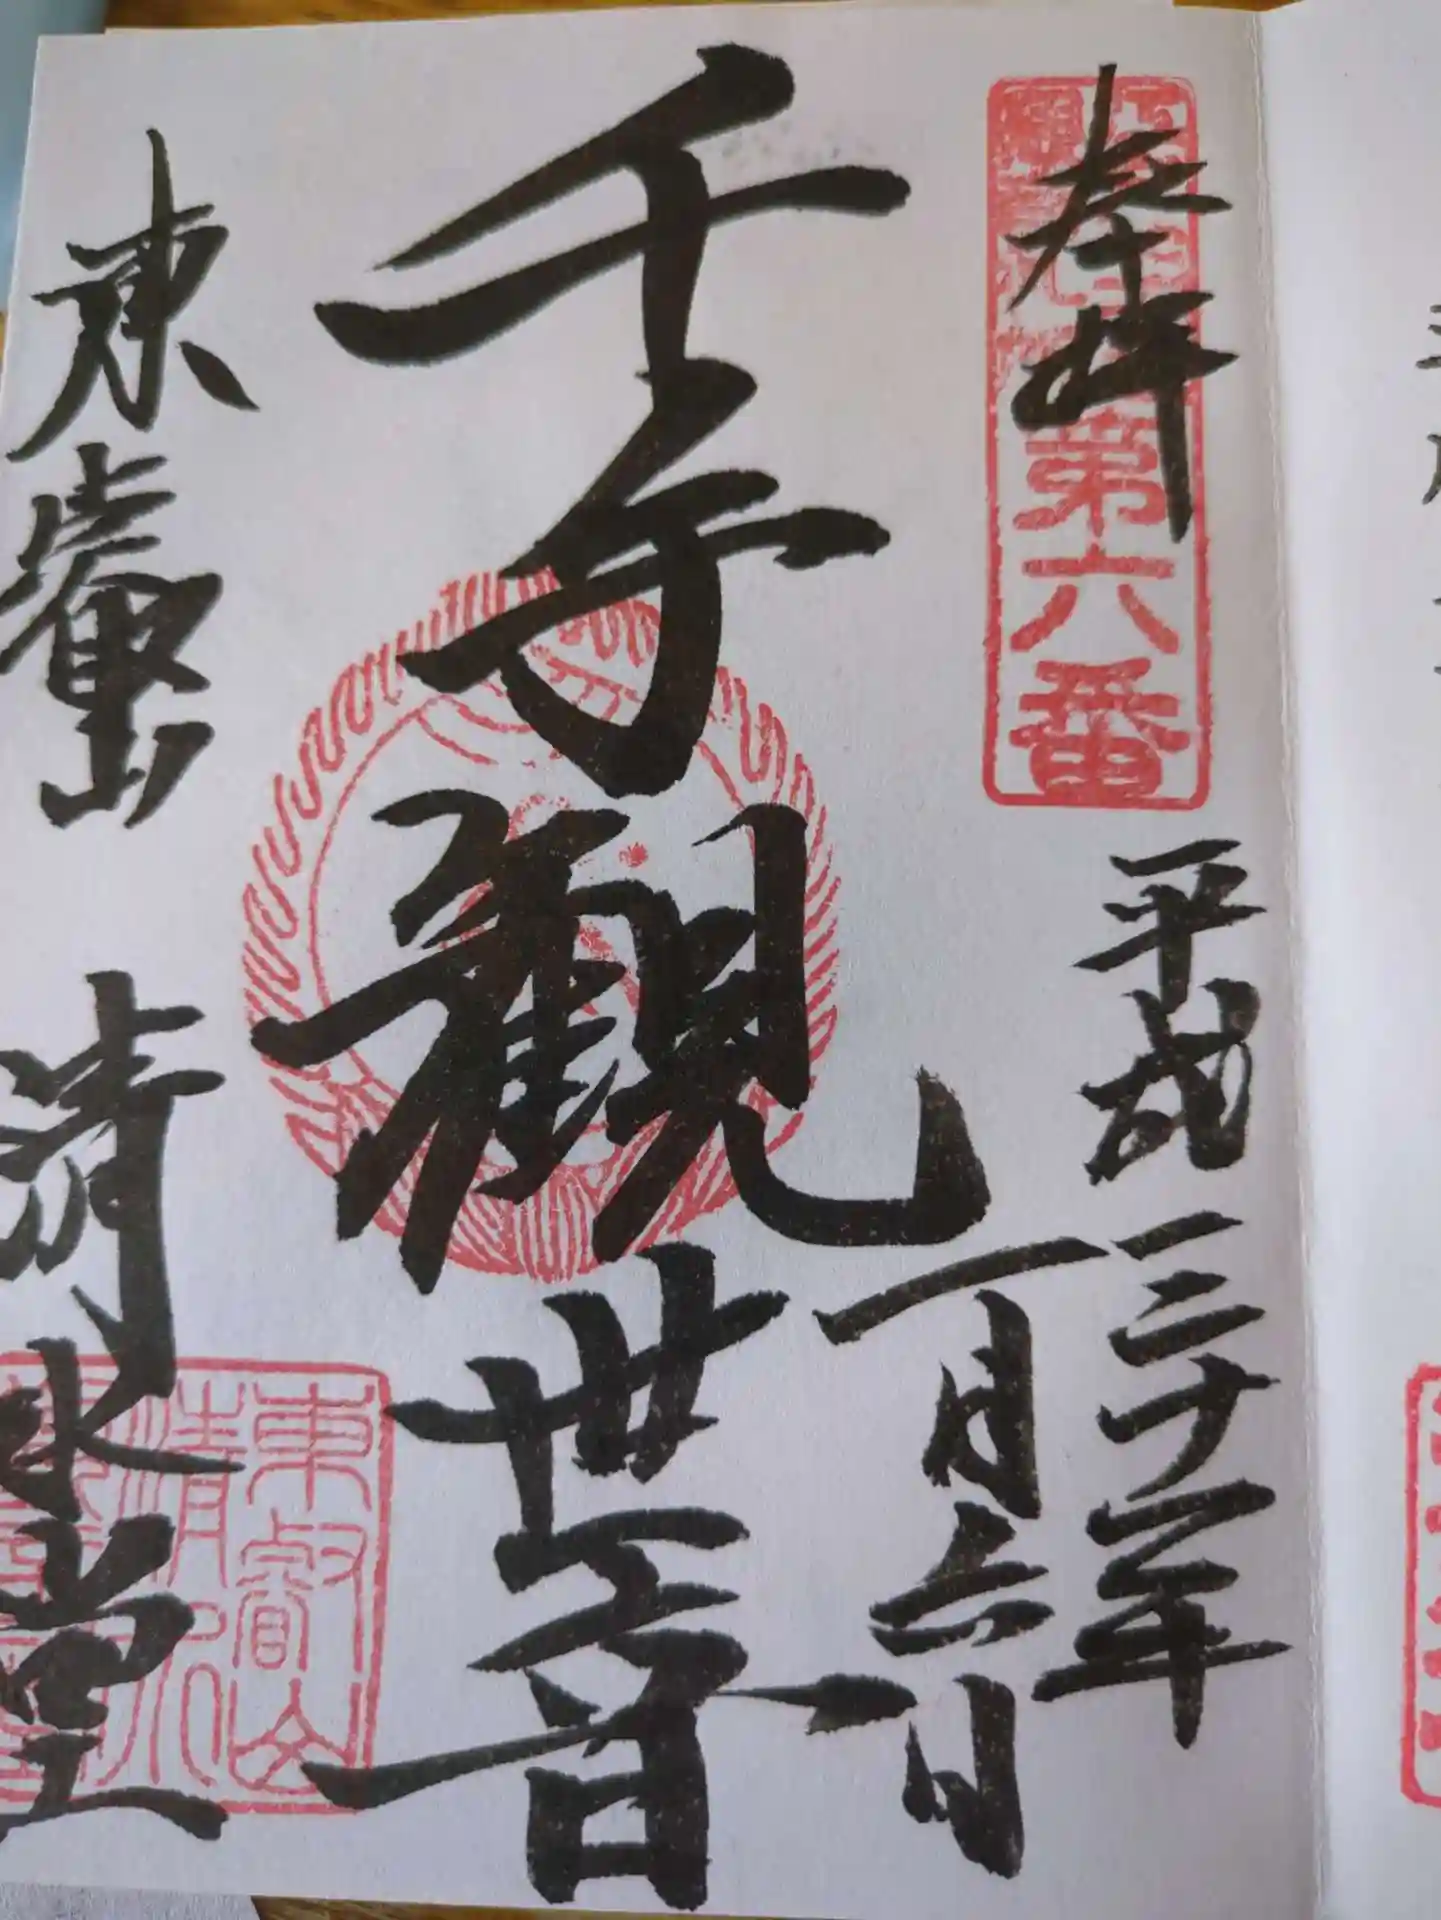 奉拝
第六番
平成三十年
一月六日
千手觀世音
東叡山
清水堂
東叡山
清水